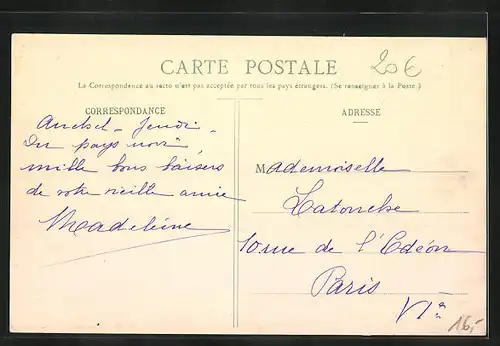 CARTE POSTALE
20€
La Correspondance au recto n'est pas acceptée par tous les pays étrangers. (Se renseigner à la Poste.)
CORRESPONDANCE
ADRESSE
Jeudi
Du pays noir
mille bons baisers
de votre vieille amie
Madeleine
Mademoiselle
Latouche
10 rue de l'Odéon
Paris
VIe
16,-